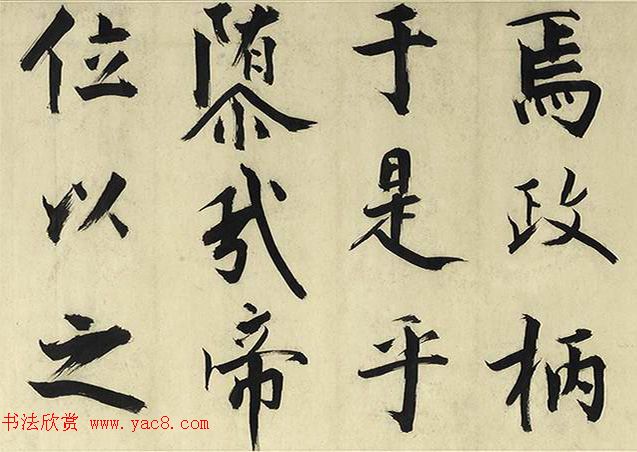 焉政柄
于是乎
隳 帝
位以之
书法欣赏 www.yac8.com